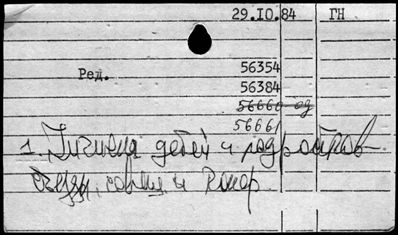 29.IO.84 ГН
Ред. 56354
56384
56660
56661
1. Гигиена детей и подростков
съезды, совещ и конф.